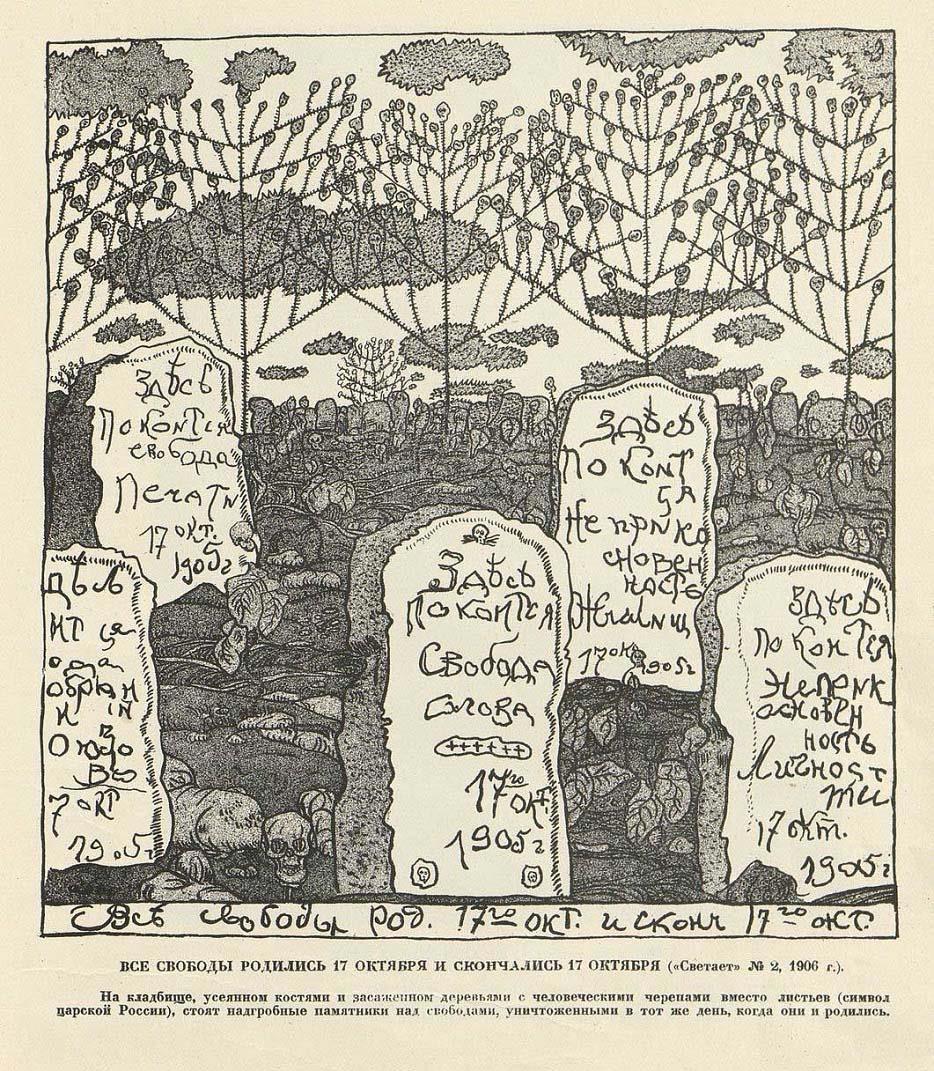 Здѣсь
Покоится
свобода
Печати
17 окт.
1905 г
Здѣсь
Покоит
ся
Неприко
сновен
ность
Жилищ
17 ок 1905 г
дѣсь
ит ся
ода
обран
и ій
в
Союзо
въ
7 окт
1905 г
Здѣсь
Покоится
Свобода
Слова
17го
окт.
1905 г
Здѣсь
покоится
Неприк
основен
ность
Личност
ти
17 окт.
1905 г
Всѣ свободы род. 17го окт. и сконч 17го окт.
ВСЕ СВОБОДЫ РОДИЛИСЬ 17 ОКТЯБРЯ И СКОНЧАЛИСЬ 17 ОКТЯБРЯ («Светает» № 2, 1906 г.).
На кладбище, усеянном костями и засаженном деревьями с человеческими черепами вместо листьев (символ
царской России), стоят надгробные памятники над свободами, уничтоженными в тот же день, когда они и родились.